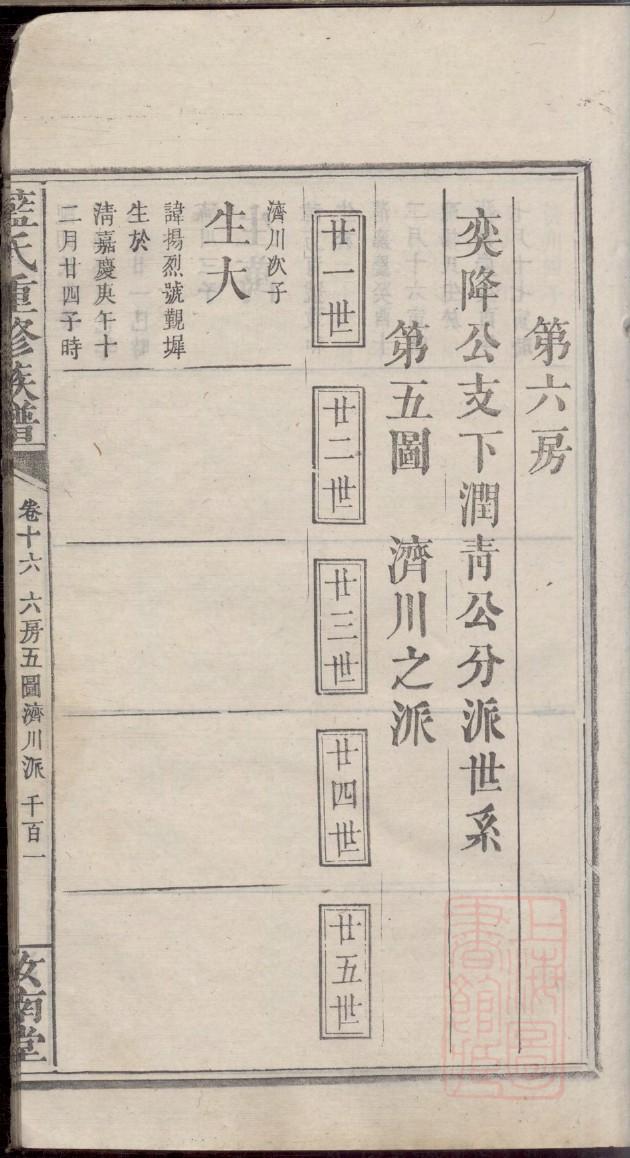 第六房
奕降公支下潤青公分派世系
第五圖 濟川之派
廿一世
廿二世
廿三世
廿四世
廿五世
濟川次子
生大
諱揚烈號覲墀
生於
清嘉慶庚午十
二月廿四子時
藍氏重修族譜
卷十六 六房五圖濟川派 千百一
汝南堂
上海圖
書館藏